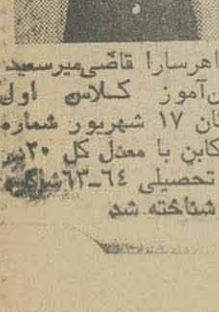 اهرسارا قاضی‌میرسعید
ن‌آموز کلاس اول
تان ۱۷ شهریور شماره
کابن با معدل کل ۲۰
تحصیلی ۶۴ـ۶۳
شناخته شد